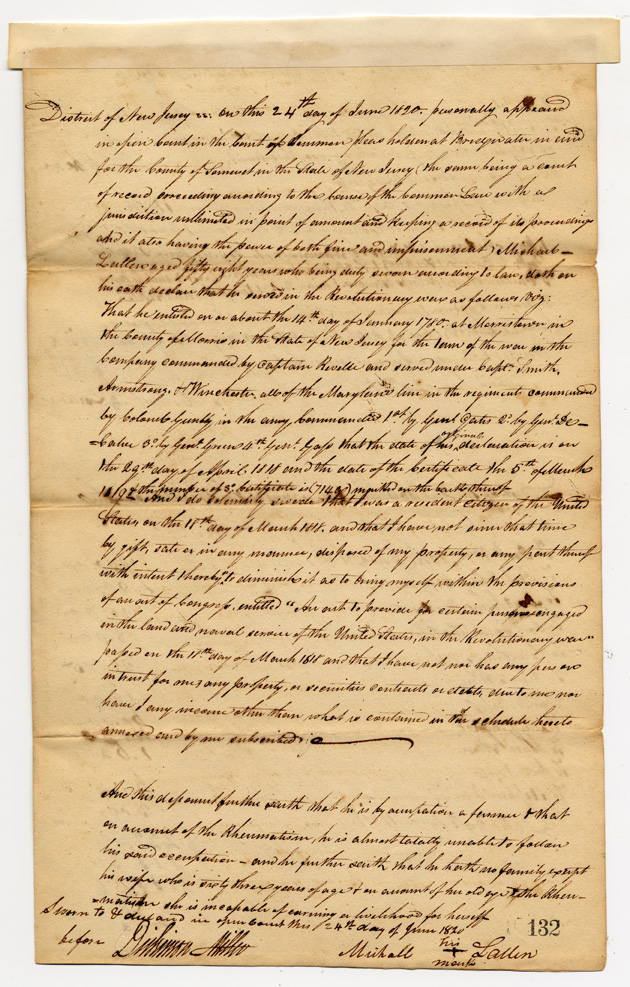 District of New Jersey ss: on this 24th day of June 1820. personally appeared
in open Court in the Court of Common Pleas holden at Bridgwater in and
for the County of Somerset in the State of New Jersey (the same being a court
of record proceeding according to the course of the Common Law with a
jurisdiction unlimited in point of amount and keeping a record of its proceedings
and it also having the power of both fine and imprisonment) Michael
Lallen aged fifty eight years who being duly sworn according to law, doth on
his oath declare that he served in the Revolutionary war as follows Viz:
That he enlisted on or about the 14th day of January 1780. at Morristown in
the County of Morris in the State of New Jersey for the term of the war in the
Company commanded by Captain Revelle and served under Capts. Smith,
Armstrong, & Winchester, all of the Maryland line in the regiment commanded
by Colonel Gunby in the army Commanded 1st by Genl Gates 2d by Genl. De-
Calue 3d by Genl. Green 4th Genl. Gass that the date of his original declaration is on
the 29th day of April 1818 and the date of the Certificate the 5th of March
1819 & the number of sd certificate is (7148) marked on the back thereof
And I do solemnly swear that I was a resident citizen of the United
States, on the 18th day of March 1818. and that I have not since that time
by gift, sale or in any manner, disposed of my property, or any part thereof
with intent thereby, to diminish it as to bring myself within the provisions
of an act of Congress, entitled "An act to provide for certain persons engaged
in the land and naval service of the United States, in the Revolutionary war"
passed on the 18th day of March 1818 and that I have not nor has any person
in trust for me, any property, or securities contracts or debts, due to me nor
have I any income other than what is contained in the schedule hereto
annexed and by me subscribed:
And this deponent further saith that he is by occupation a farmer & that
on account of the Rheumatism, he is almost totally unable to follow
his said occupation - and he further saith that he hath no family except
his wife who is sixty three years of age & on account of her old age & the Rheu-
matism she is incapable of earning a livelihood for herself
Sworn to & declared in open Court this 24th day of June 1820
before Dickinson Miller
Michall his + mark Lallen
132